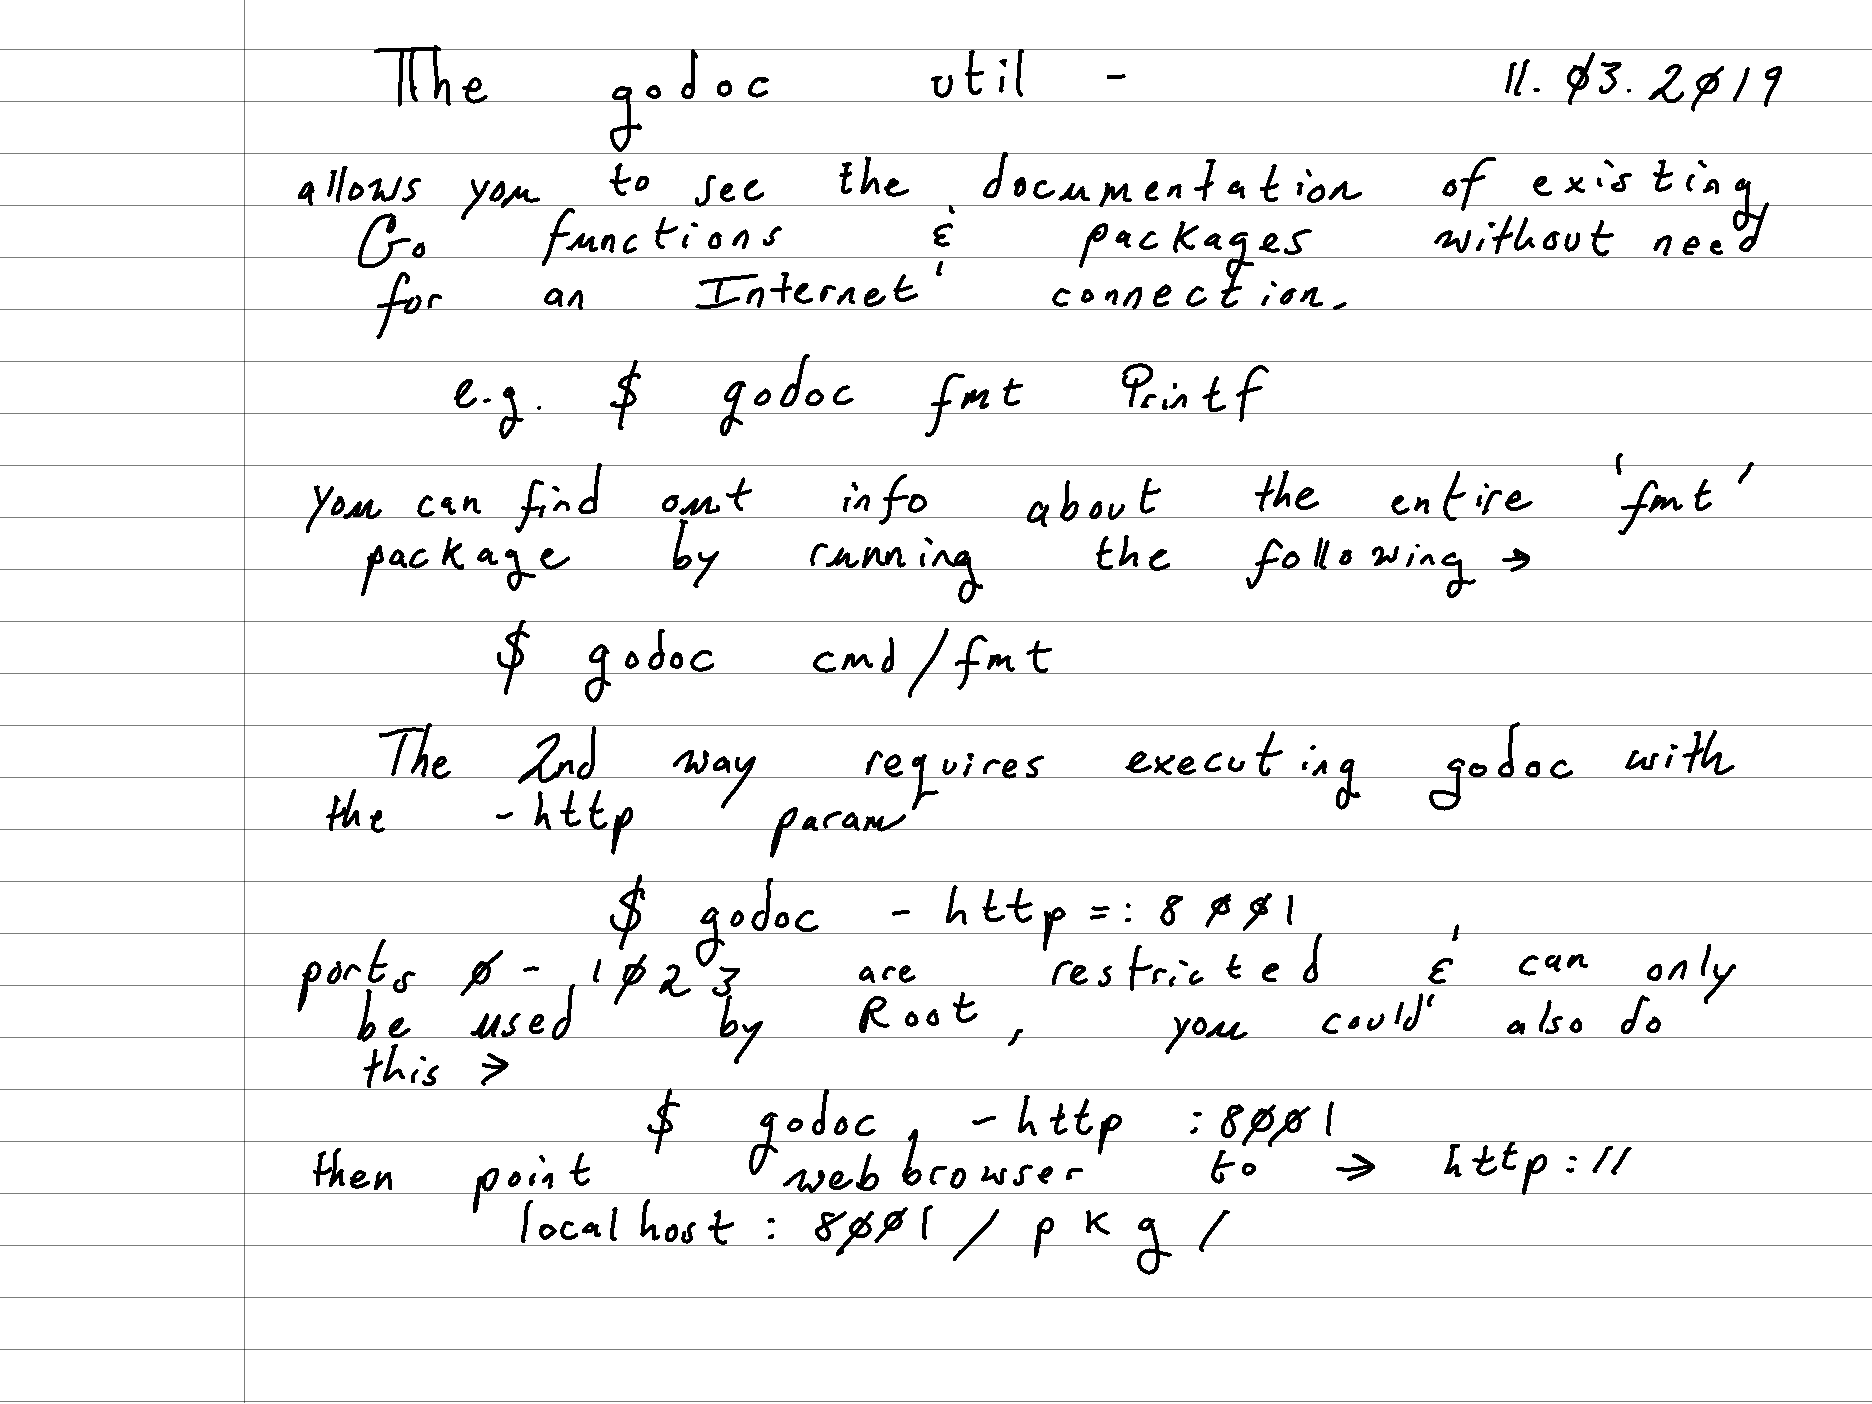 The godoc util - 11.03.2019
allows you to see the documentation of existing
Go functions & packages without need
for an Internet connection.
e.g. $ godoc fmt Printf
you can find out info about the entire 'fmt'
package by running the following →
$ godoc cmd/fmt
The 2nd way requires executing godoc with
the -http param
$ godoc -http=:8001
ports 0-1023 are restricted & can only
be used by Root, you could also do
this →
$ godoc -http :8001
then point web browser to → http://
localhost:8001/pkg/